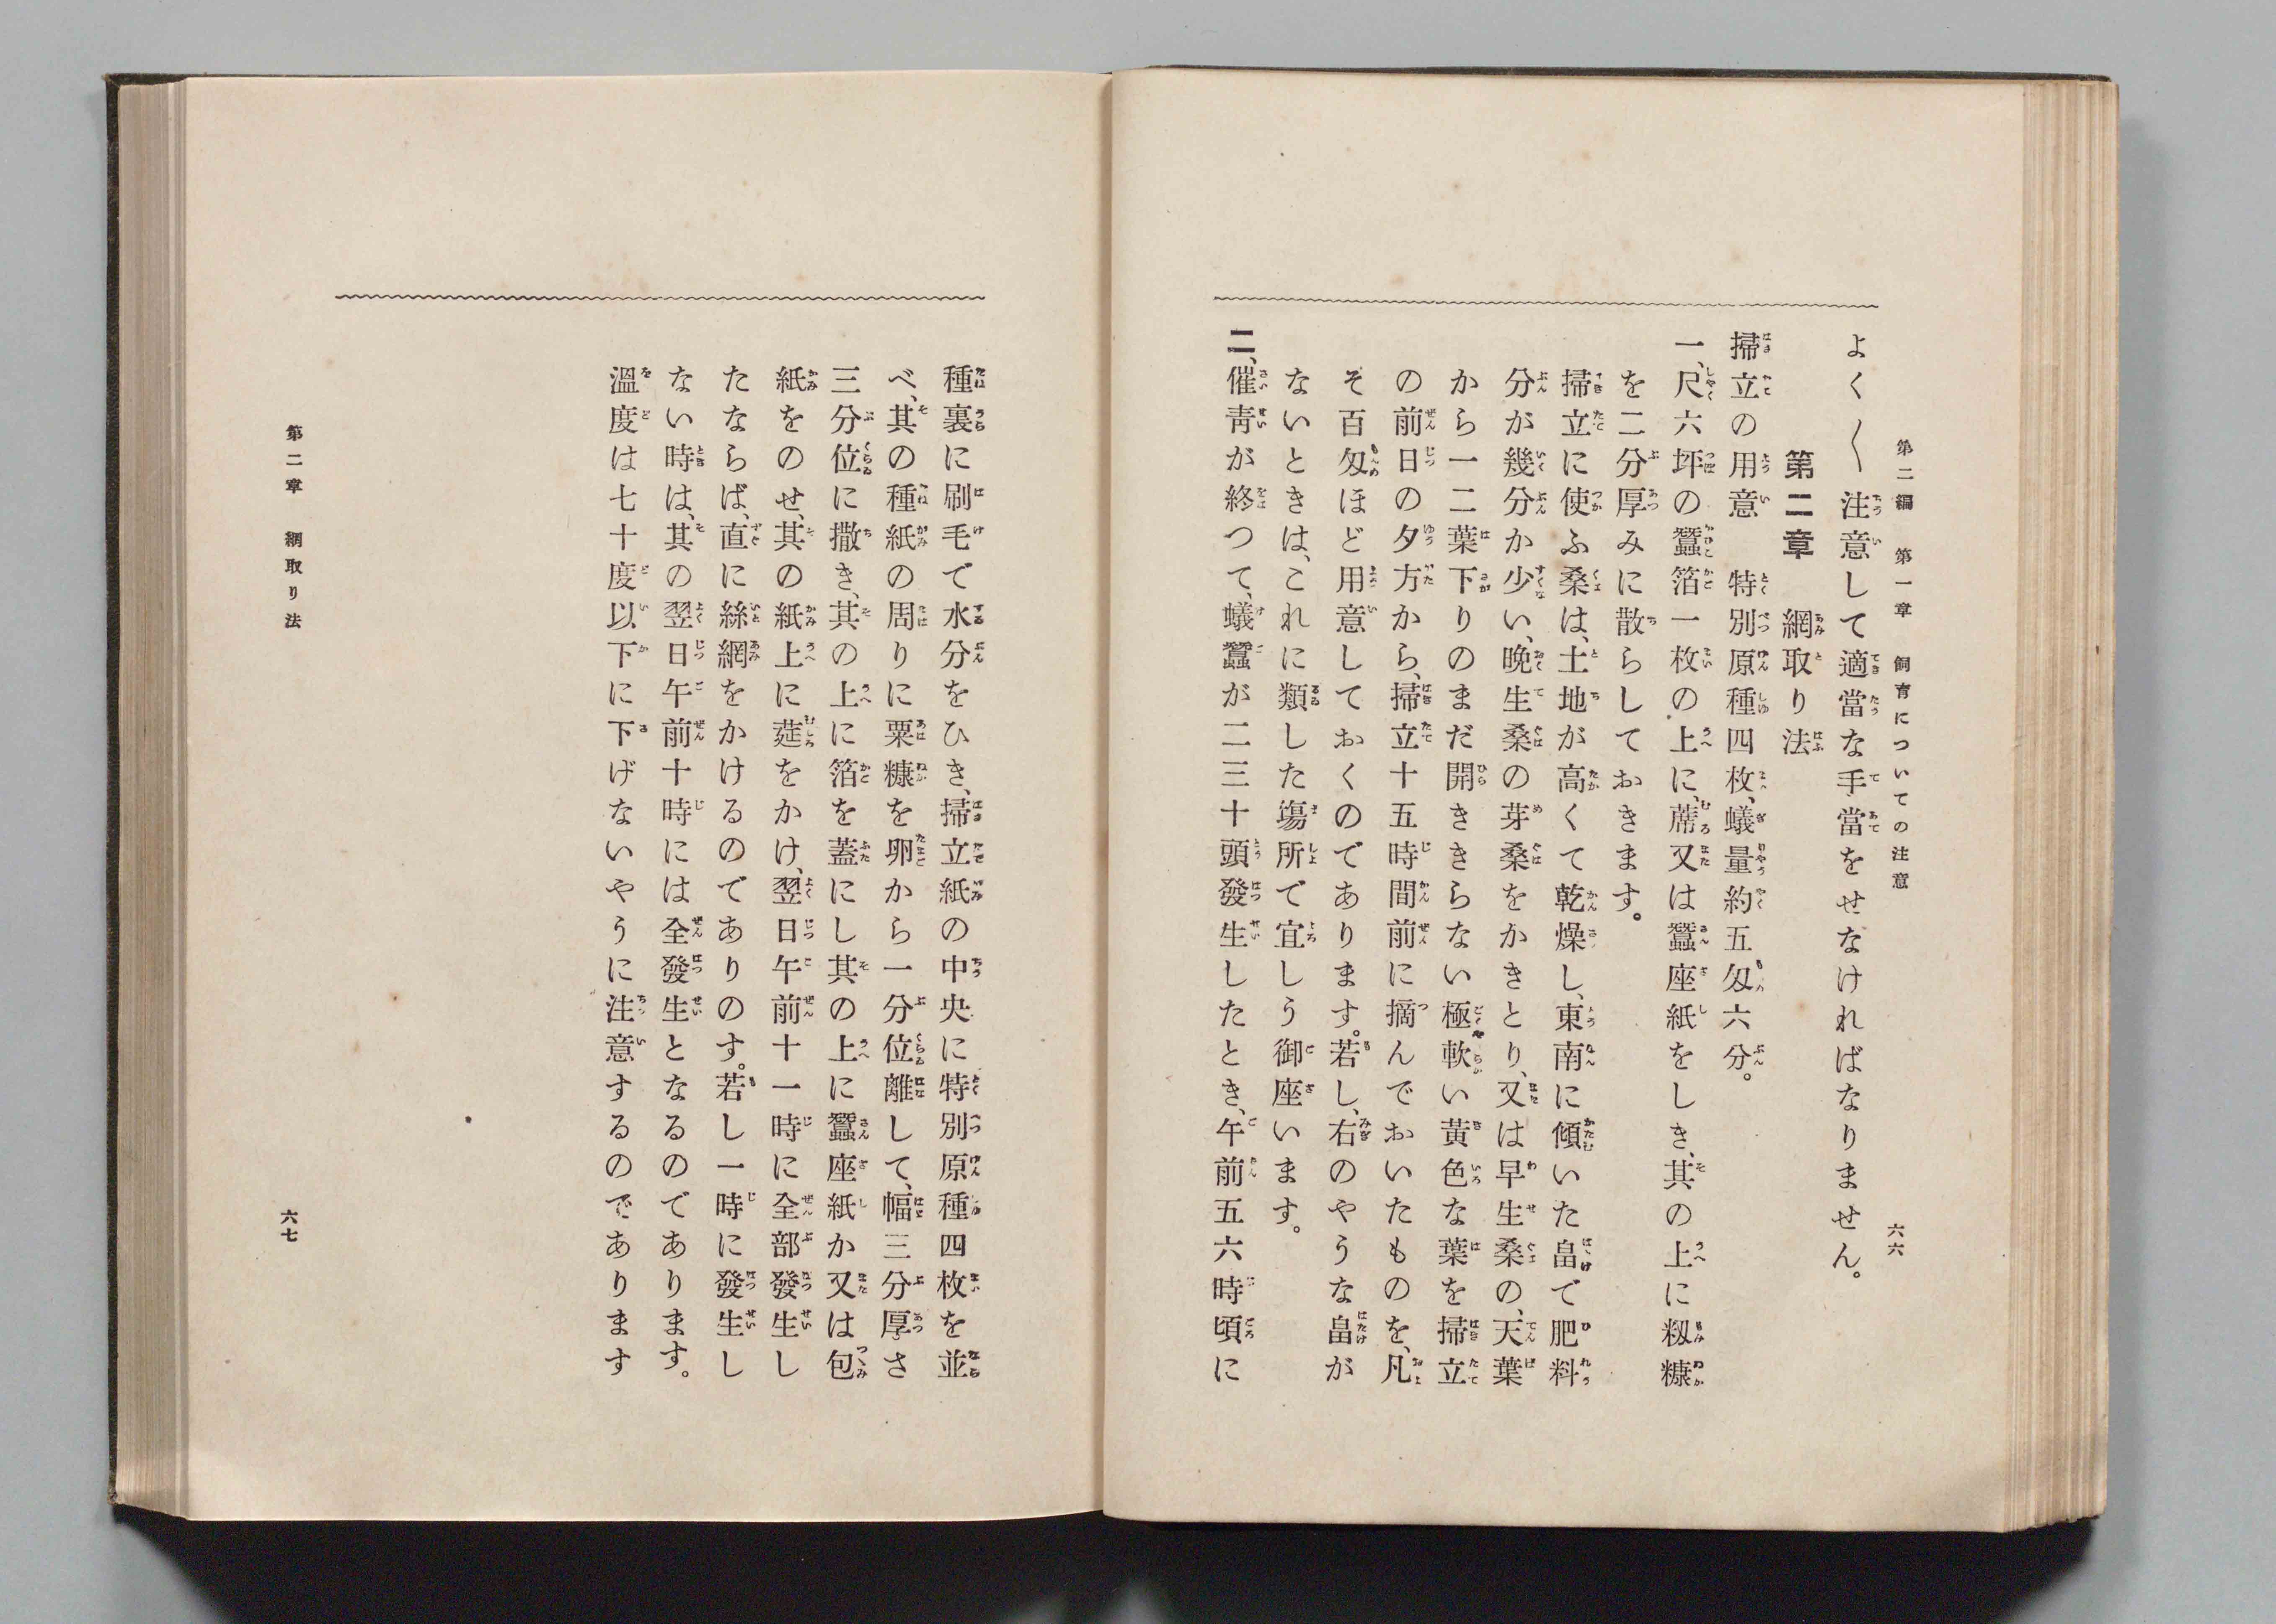 第二編　第一章　飼育についての注意
六六
よく〱注意して適當な手當をせなければなりません。
第二章　網取り法
掃立の用意　特別原種四枚、蟻量約五匁六分。
一、尺六坪の蠶箔一枚の上に、蓆又は蠶座紙をしき、其の上に籾糠
を二分厚みに散らしておきます。
掃立に使ふ桑は、土地が高くて乾燥し、東南に傾いた畠で肥料
分が幾分か少い、晩生桑の芽桑をかきとり、又は早生桑の、天葉
から一二葉下りのまだ開ききらない極軟い黃色な葉を掃立
の前日の夕方から、掃立十五時間前に摘んでおいたものを、凡
そ百匁ほど用意しておくのであります。若し、右のやうな畠が
ないときは、これに類した塲所で宜しう御座います。
二、催靑が終つて、蟻蠶が二三十頭發生したとき、午前五六時頃に
種裏に刷毛で水分をひき、掃立紙の中央に特別原種四枚を並
べ、其の種紙の周りに粟糠を卵から一分位離して、幅三分厚さ
三分位に撒き、其の上に箔を蓋にし其の上に蠶座紙か又は包
紙をのせ、其の紙上に莚をかけ、翌日午前十一時に全部發生し
たならば、直に絲網をかけるのでありのす。若し一時に發生し
ない時は、其の翌日午前十時には全發生となるのであります。
溫度は七十度以下に下げないやうに注意するのであります
第二章　網取り法
六七